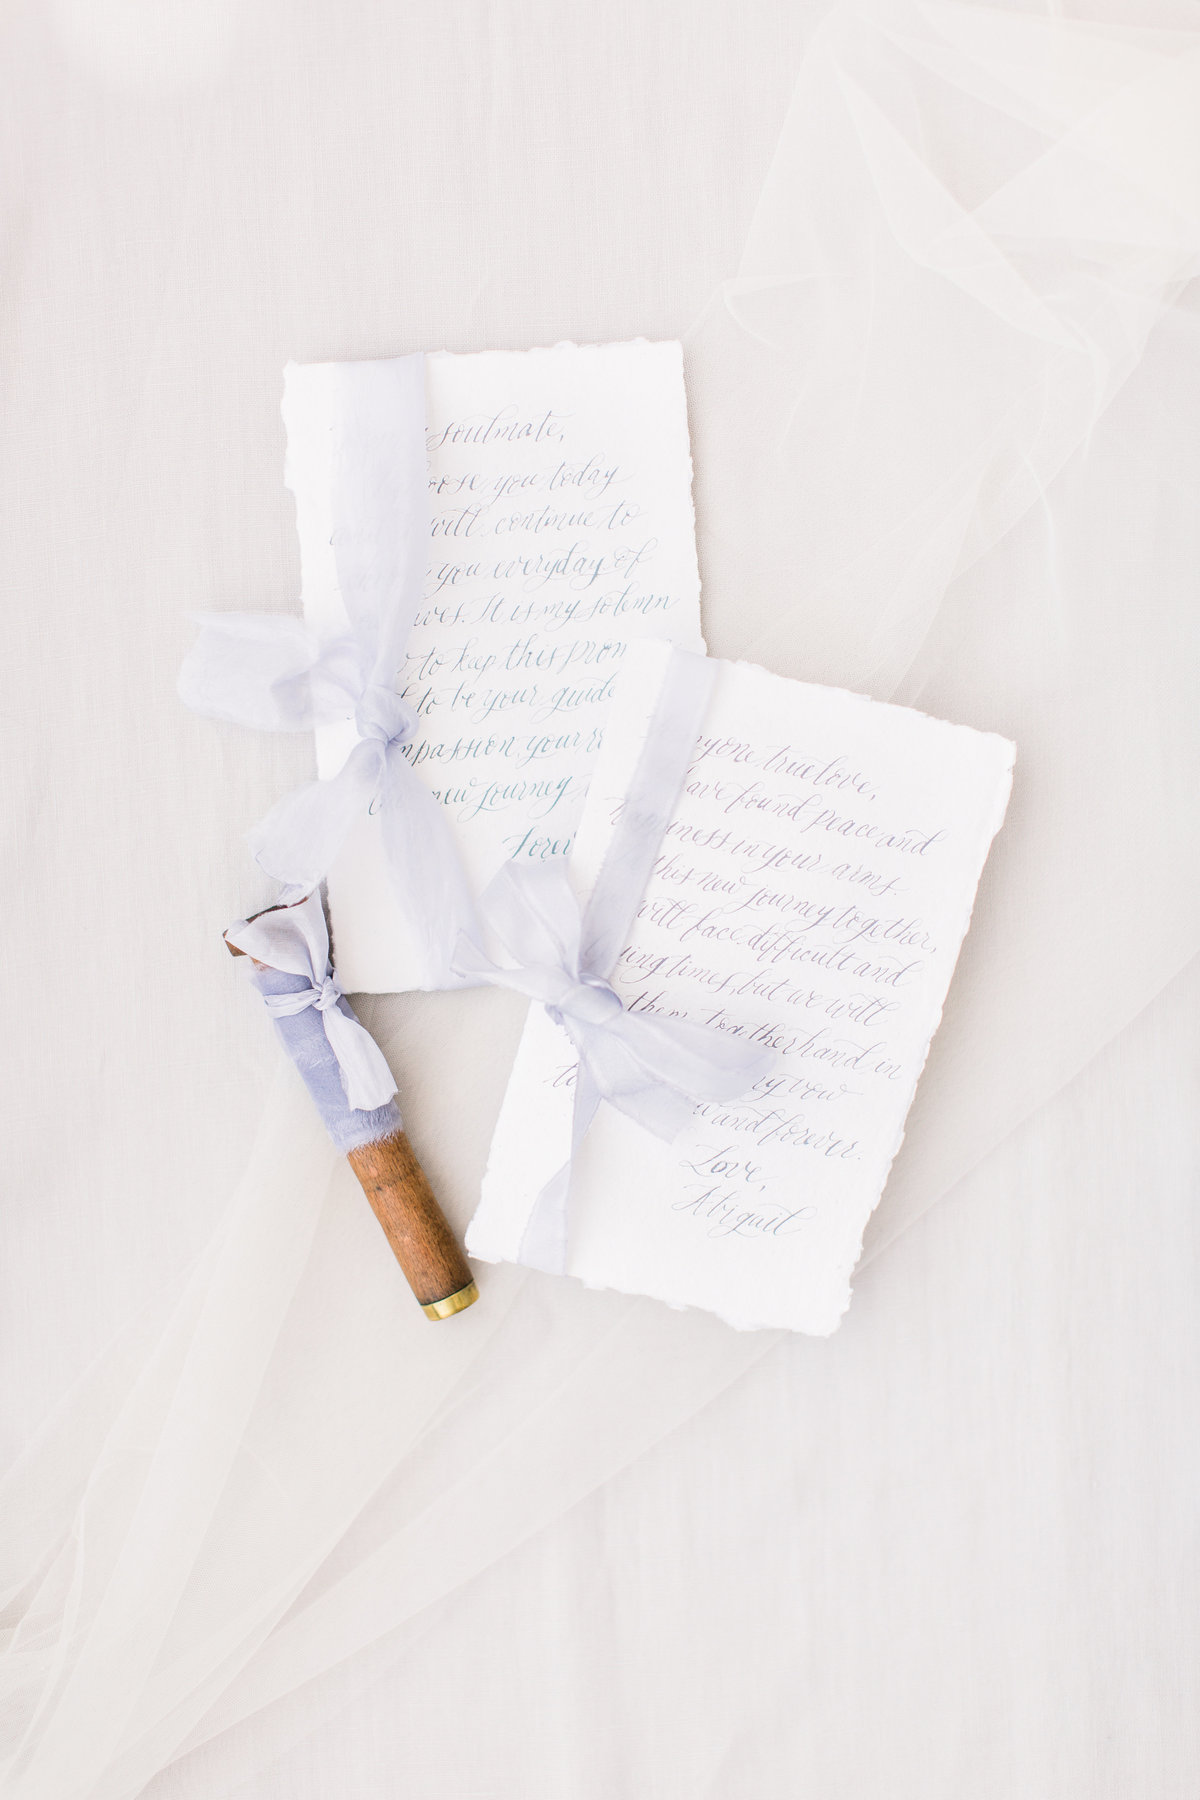 soulmate,
you today
will continue to
you everyday of
It is my solemn
to keep this
to be your guide
your
new journey
one true love,
have found peace and
in your arms.
this new journey together,
will face difficult and
times, but we will
them together hand in
vow
and forever.
Love,
Abigail